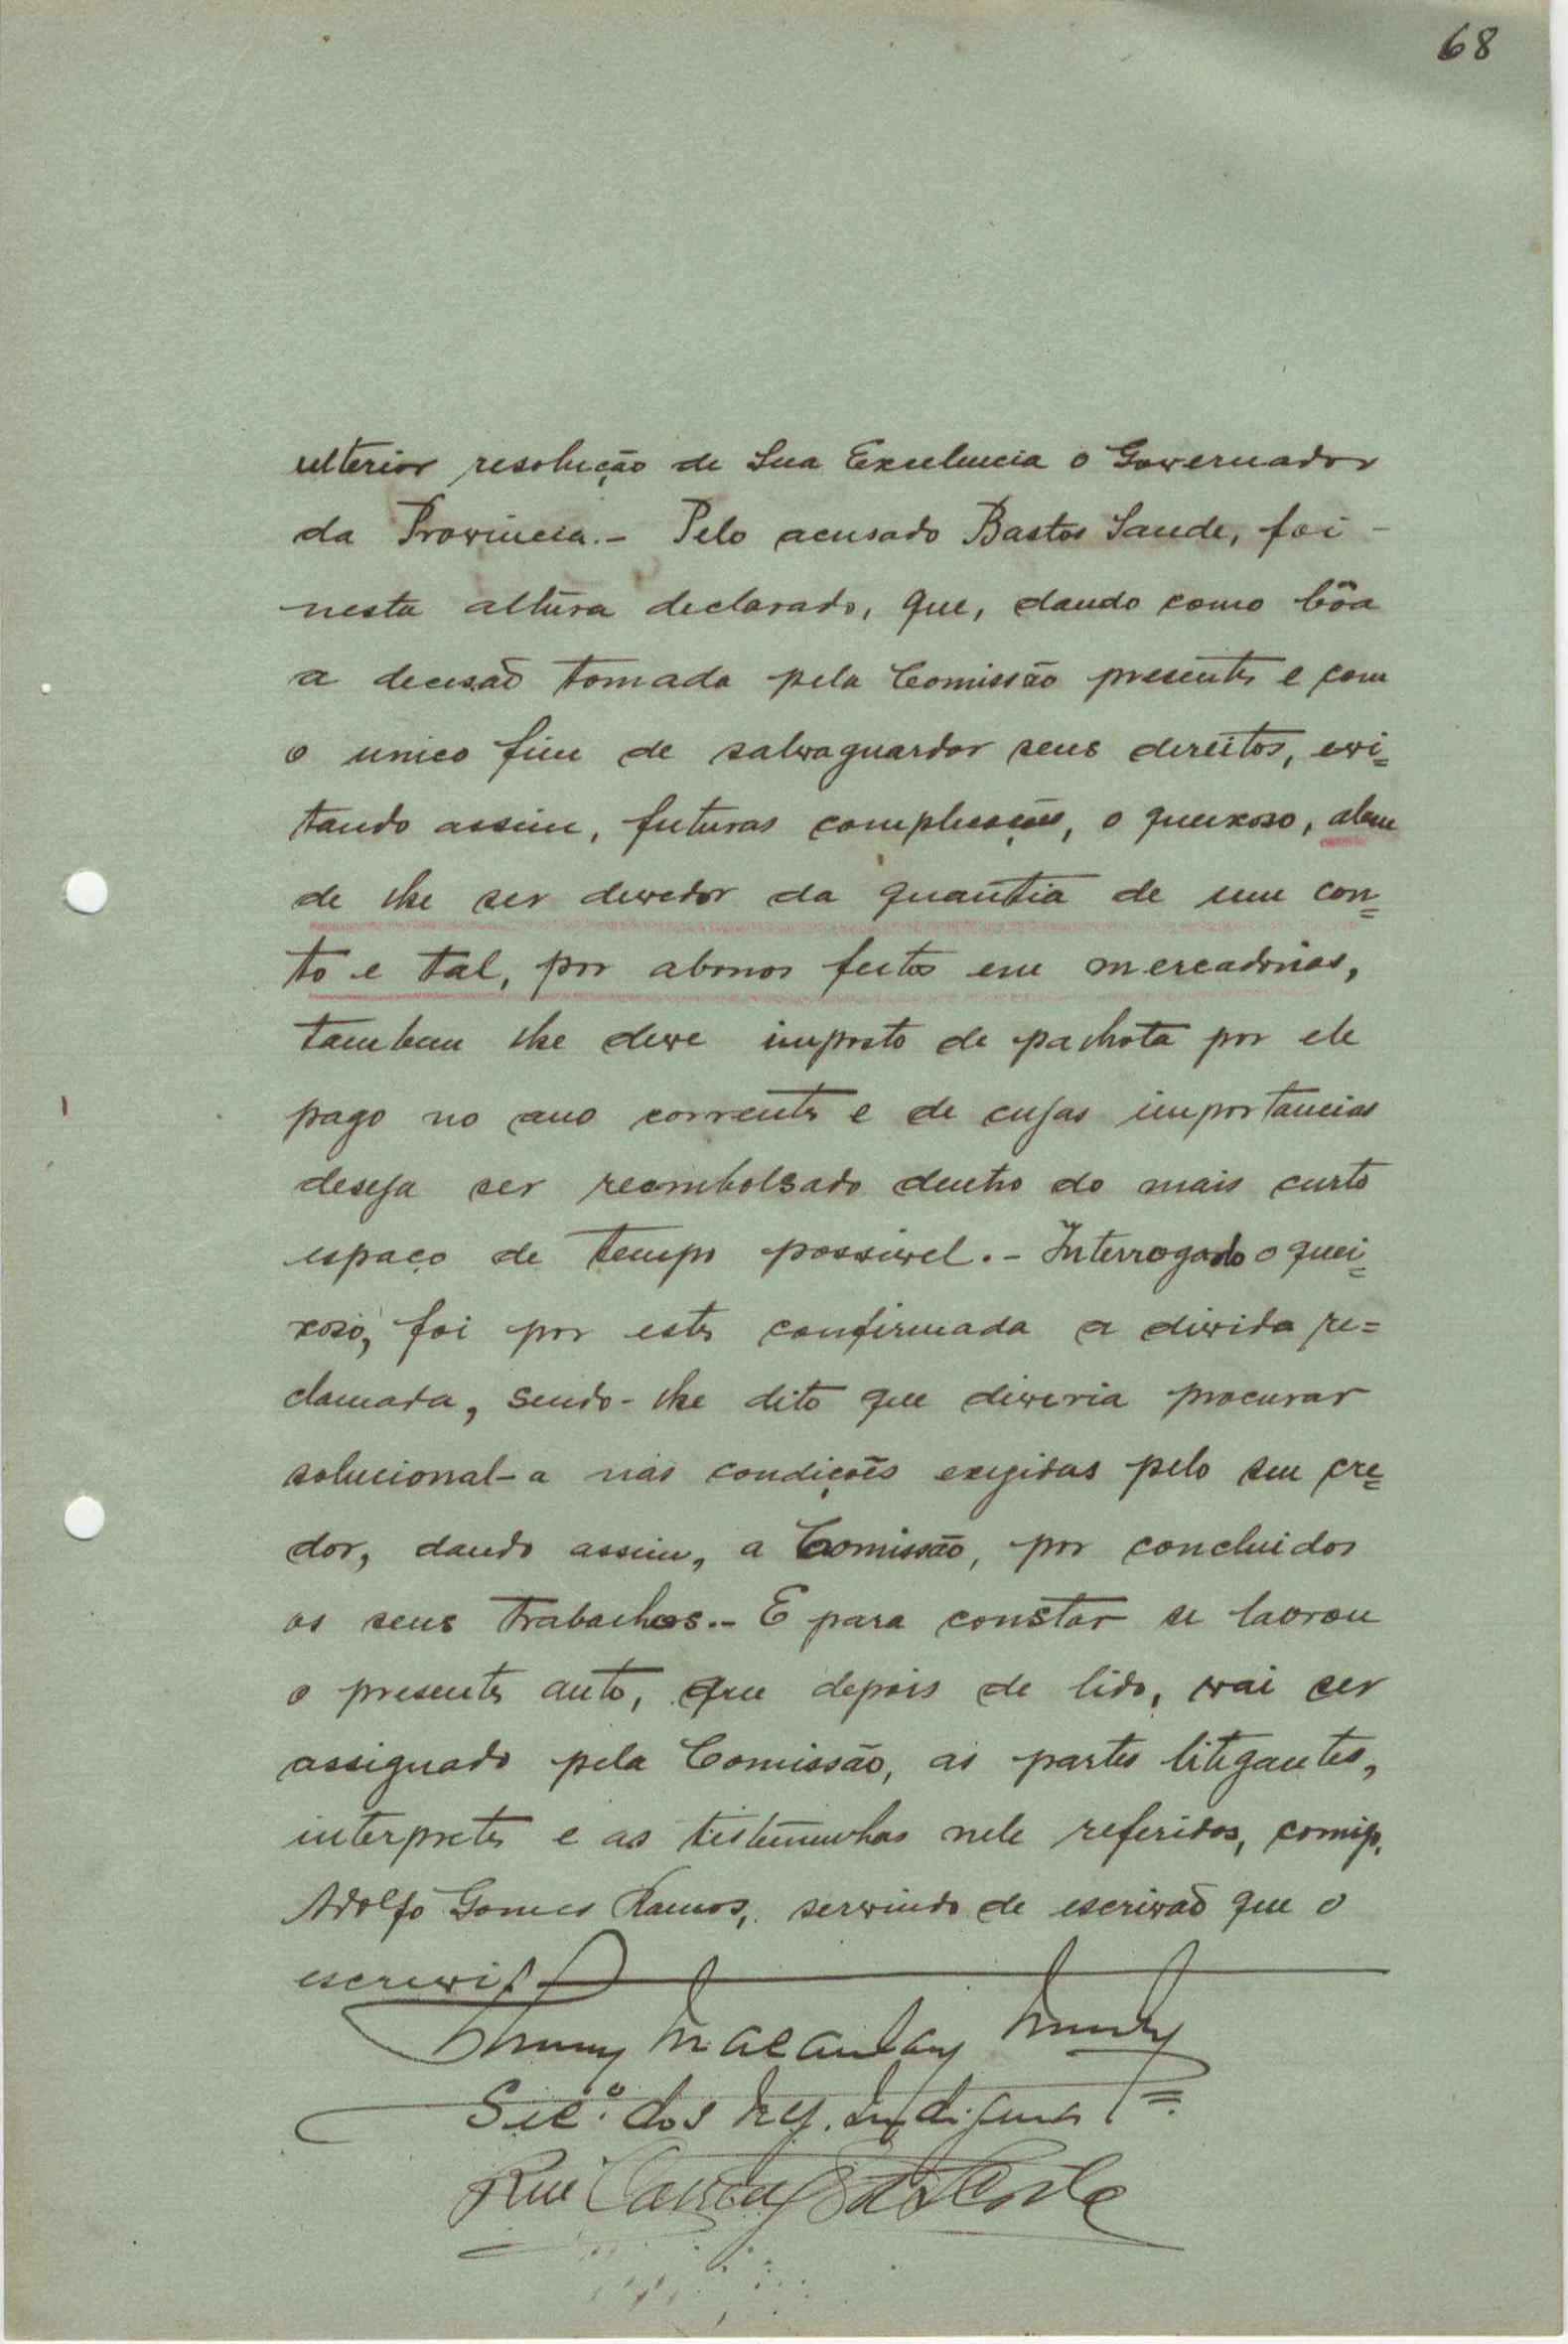 68
ulterior resolução de Sua Excelencia o Governador
da Provincia.- Pelo acusado Bastos Saude, foi -
nesta altura declarado, que, dando como bôa
a decisão tomada pela Comissão presente e com
o unico fim de salvaguardar seus direitos, evi=
tando assim, futuras complicações, o queixoso, alem
de lhe ser devedor da quantia de um con=
to e tal, por abonos feitos em mercadorias,
tambem lhe deve imposto de palhota por ele
pago no ano corrente e de cujas importancias
deseja ser reembolsado dentro do mais curto
espaço de tempo possivel.- Interrogado o quei=
xoso, foi por este confirmada a divida re=
clamada, sendo-lhe dito que diveria procurar
solucional-a nas condições exigidas pelo seu cre=
dor, dando assim, a Comissão, por concluidos
os seus trabalhos.- E para constar se lavrou
o presente auto, que depois de lido, vai ser
assignado pela Comissão, as partes litigantes,
interprete e as testemunhas nele referidos, comigo,
Adolfo Gomes Ramos, servindo de escrivão que o
escrevi
Macaulay
Sec.º dos Neg. Indigenas
Rui